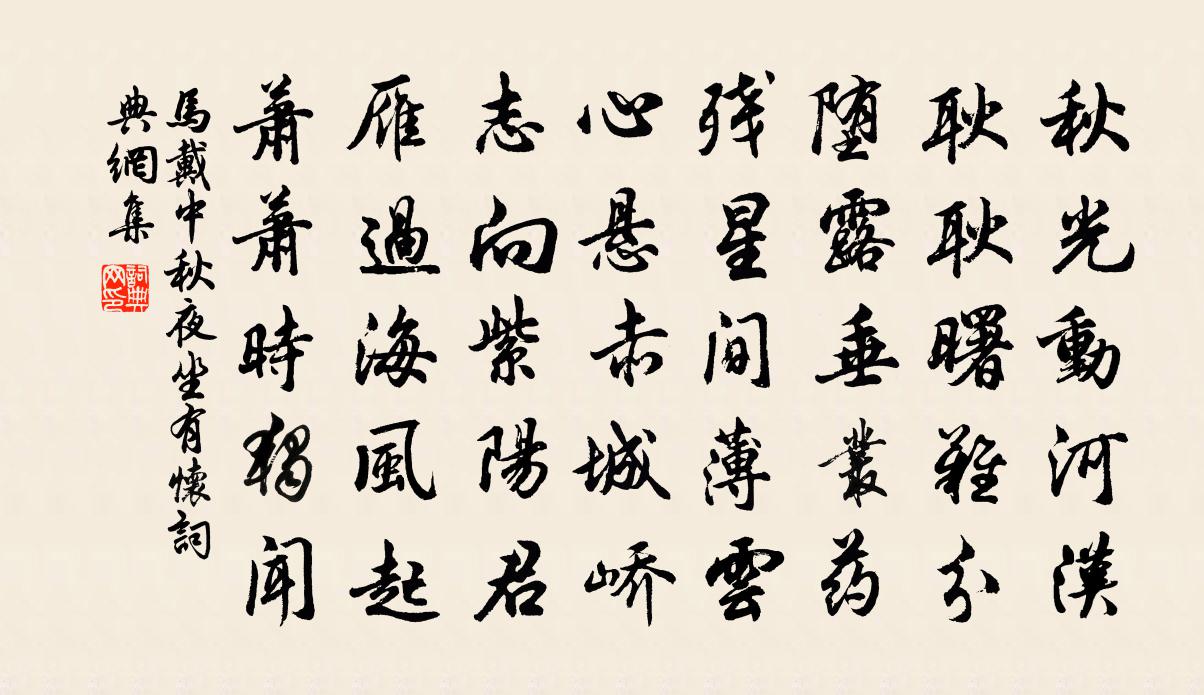 秋光動河漢
耿耿曙難分
堕露垂叢药
残星間薄雲
心悬赤城峤
志向紫陽君
雁過海風起
蕭蕭時獨聞
馬戴中秋夜坐有懷詞
典網集
詞典
网印